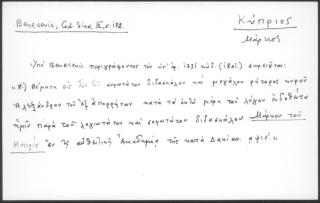 Benesevic, Cod. Sin. III, σ. 172.
Κύπριος
Μάρκος
Ὑπὸ Benesevic περιγράφοντος τὸν ὑπ. ἀρ. σημειοῦται:
θέματα εἰς σοφωτάτου διδασκάλου καὶ μεγάλου ῥήτορος κυροῦ
Ἀλεξάνδρου τοῦ ἐξ ἀπορρήτων κατὰ τὰ ὀκτὼ μέρη τοῦ λόγου ἐκδοθέντα
ἡμῖν παρὰ τοῦ λογιωτάτου καὶ σοφωτάτου διδασκάλου Μάρκου τοῦ
Κυπρίου ἐν τῇ αὐθεντικῇ Ἀκαδημίᾳ τῆς κατὰ Δακίαν